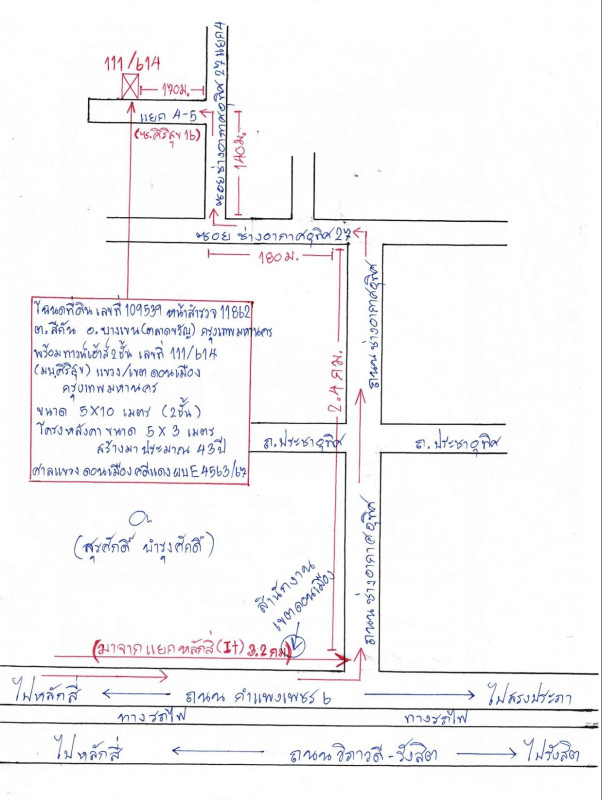 111/614
170ม.
แยก 4-5
(ซ.ศิริสุข 16)
ซอยช่างอากาศอุทิศ 27 แยก 4
140ม.
ซอย ช่างอากาศอุทิศ 27
180ม.
ถนน ช่างอากาศอุทิศ
2.4 กม.
โฉนดที่ดิน เลขที่ 109539 หน้าสำรวจ 11862
ต.สีกัน อ.บางเขน(ตลาดขวัญ) กรุงเทพมหานคร
พร้อมทาวน์เฮ้าส์2ชั้น เลขที่ 111/614
(มบ.ศิริสุข) แขวง/เขต ดอนเมือง
กรุงเทพมหานคร
ขนาด 5X10 เมตร (2ชั้น)
โครงหลังคา ขนาด 5 X 3 เมตร
สร้างมา ประมาณ 43 ปี
ศาลแขวง ดอนเมือง คดีแดง ผบE4563/67
ถ.ประชาอุทิศ
ถ.ประชาอุทิศ
(สุรศักดิ์ บำรุงศักดิ์)
ถนน ช่างอากาศอุทิศ
สำนักงาน
เขตดอนเมือง
(มาจาก แยก หลักสี่ (IT) 3.2 กม)
ไปหลักสี่ ถนน กำแพงเพชร 6 ไปสรงประภา
ทางรถไฟ ทางรถไฟ
ไปหลักสี่ ถนนวิภาวดี-รังสิต ไปรังสิต